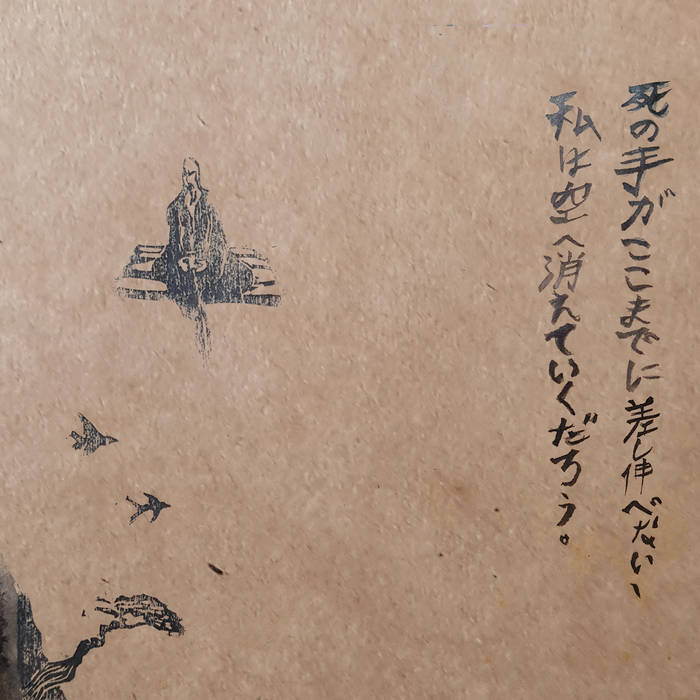 死の手がここまでに差し伸べない、
私は空へ消えていくだろう。